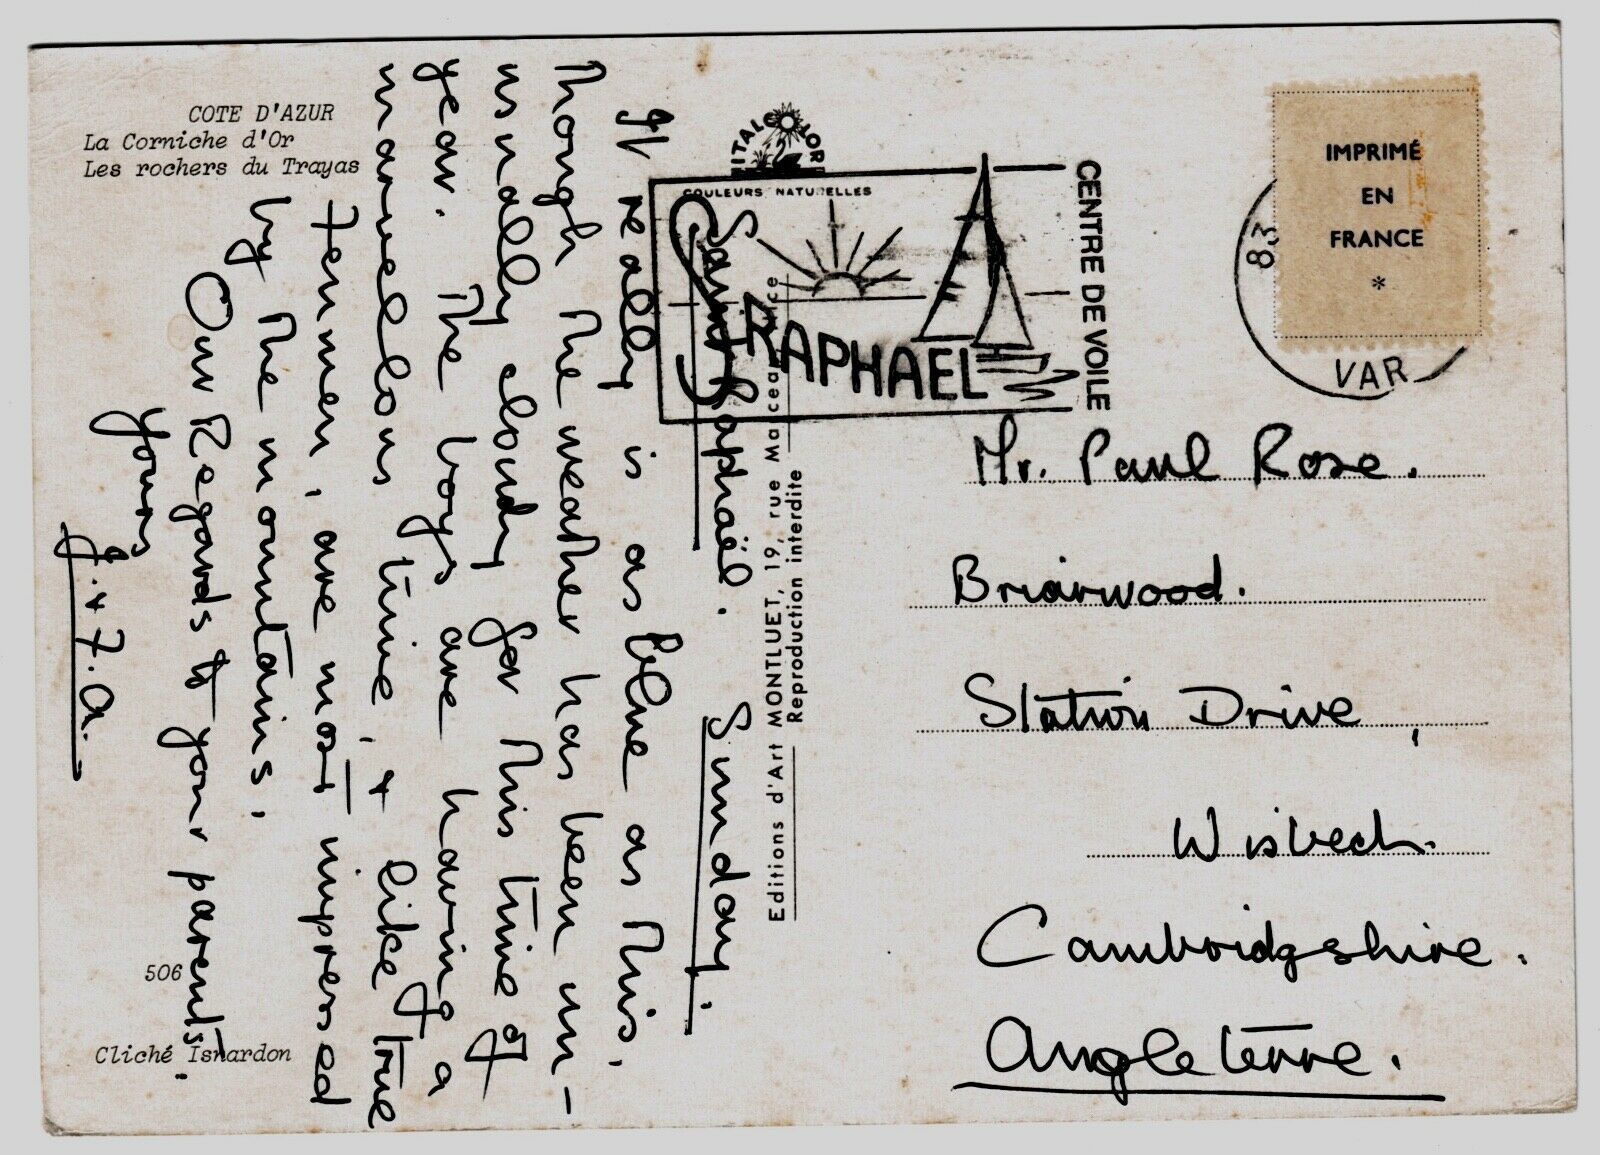 COTE D'AZUR
La Corniche d'Or
Les rochers du Trayas
ITALCOLOR
COULEURS NATURELLES
Saint Raphaël. Sunday.
It really is as blue as this,
though the weather has been un-
usually cloudy for this time of
year. The boys are having a
marvellous time, + like true
Fenmen, are most impressed
by the mountains.
Our Regards to your parents.
Yours
J. + F. A.
506
Cliché Isnardon
Editions d'Art MONTLUET, 19, rue Marceau, Nice
Reproduction interdite
St RAPHAEL
CENTRE DE VOILE
83
VAR
IMPRIMÉ
EN
FRANCE
*
Mr. Paul Rose.
Briarwood.
Station Drive,
Wisbech.
Cambridgeshire.
Angleterre.